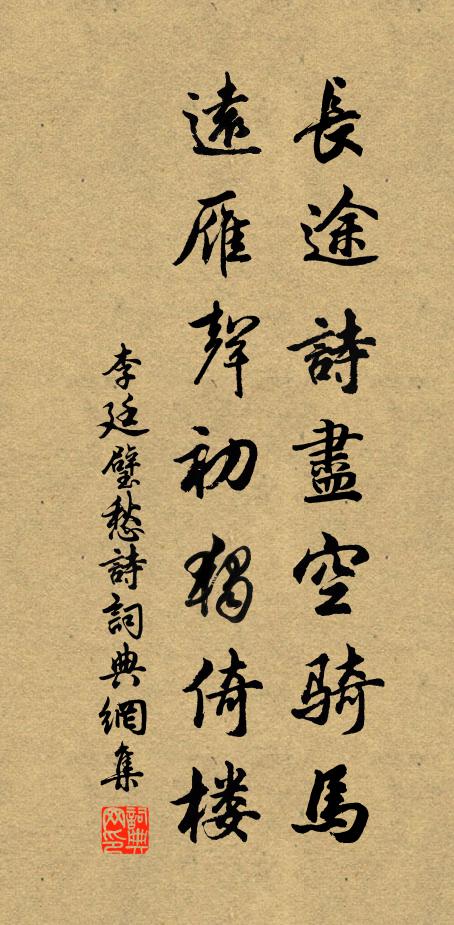 長途詩盡空騎馬
遠雁聲初獨倚楼
李廷璧愁詩詞典網集
詞典
网印